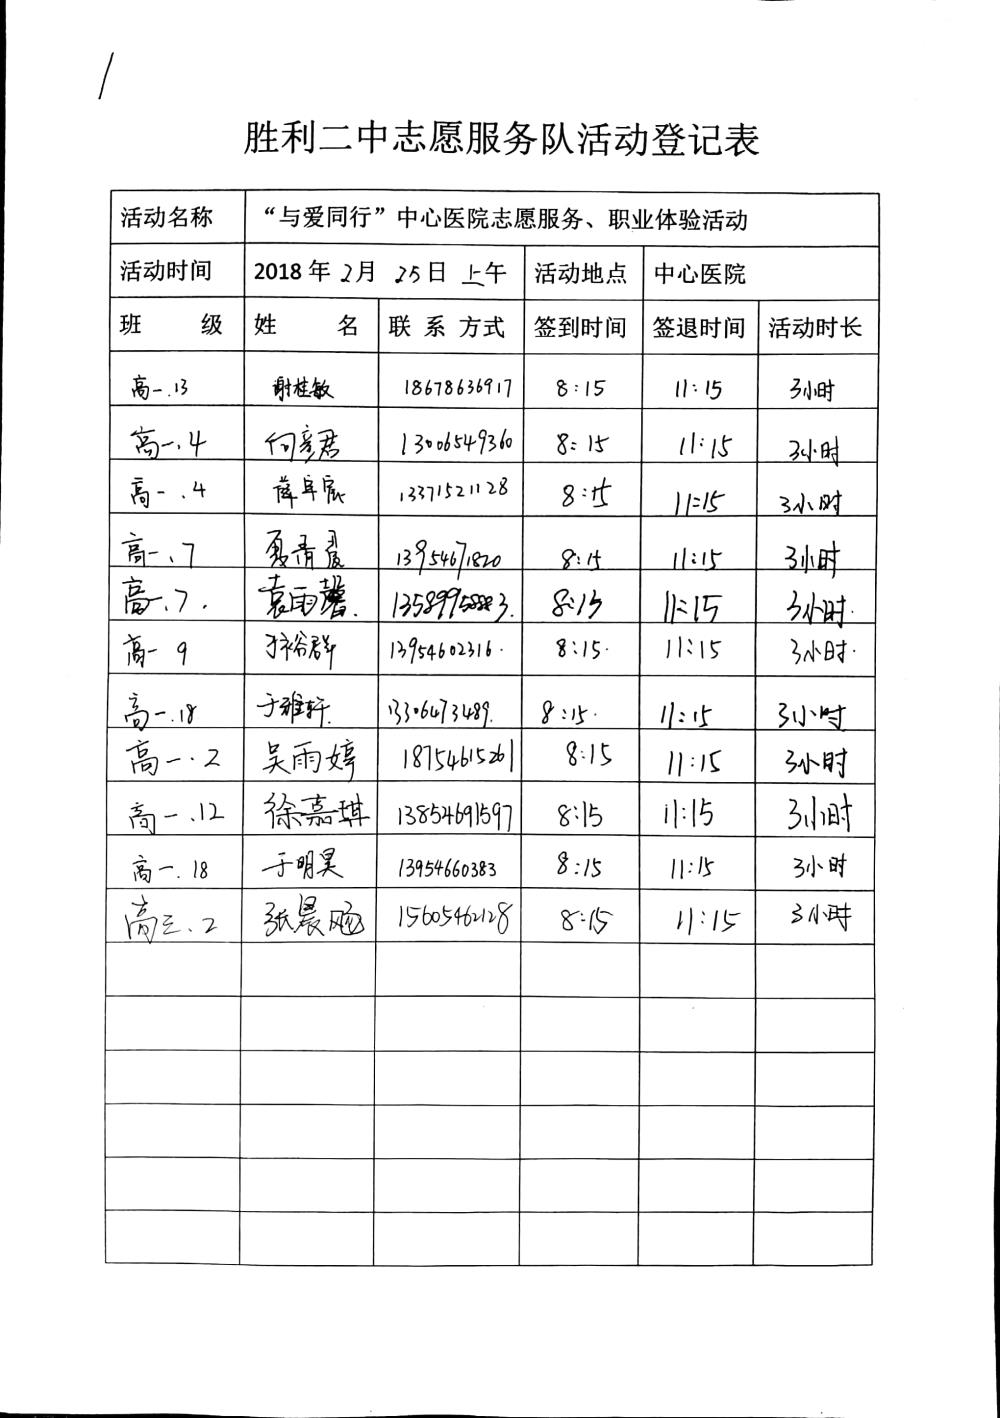 胜利二中志愿服务队活动登记表
活动名称 “与爱同行”中心医院志愿服务、职业体验活动
活动时间 2018年2月 25日 上午 活动地点 中心医院
班 级 姓 名 联 系 方式 签到时间 签退时间 活动时长
高一.13 谢桂敏 18678636917 8:15 11:15 3小时
高一.4 何彦君 13006549360 8:15 11:15 3小时
高一.4 薛阜宸 13371521128 8:15 11:15 3小时
高一.7 8:15 11:15 3小时
高一.7. 袁雨馨. 8:15 11:15 3小时.
高一 9 于裕群 13954602316. 8:15. 11:15 3小时.
高一.18 于雅轩. 13306473489. 8:15. 11:15 3小时
高一.2 吴雨婷 18754615261 8:15 11:15 3小时
高一.12 徐嘉琪 13854691597 8:15 11:15 3小时
高一.18 于明昊 13954660383 8:15 11:15 3小时
高三.2 张晨飏 15605462128 8:15 11:15 3小时